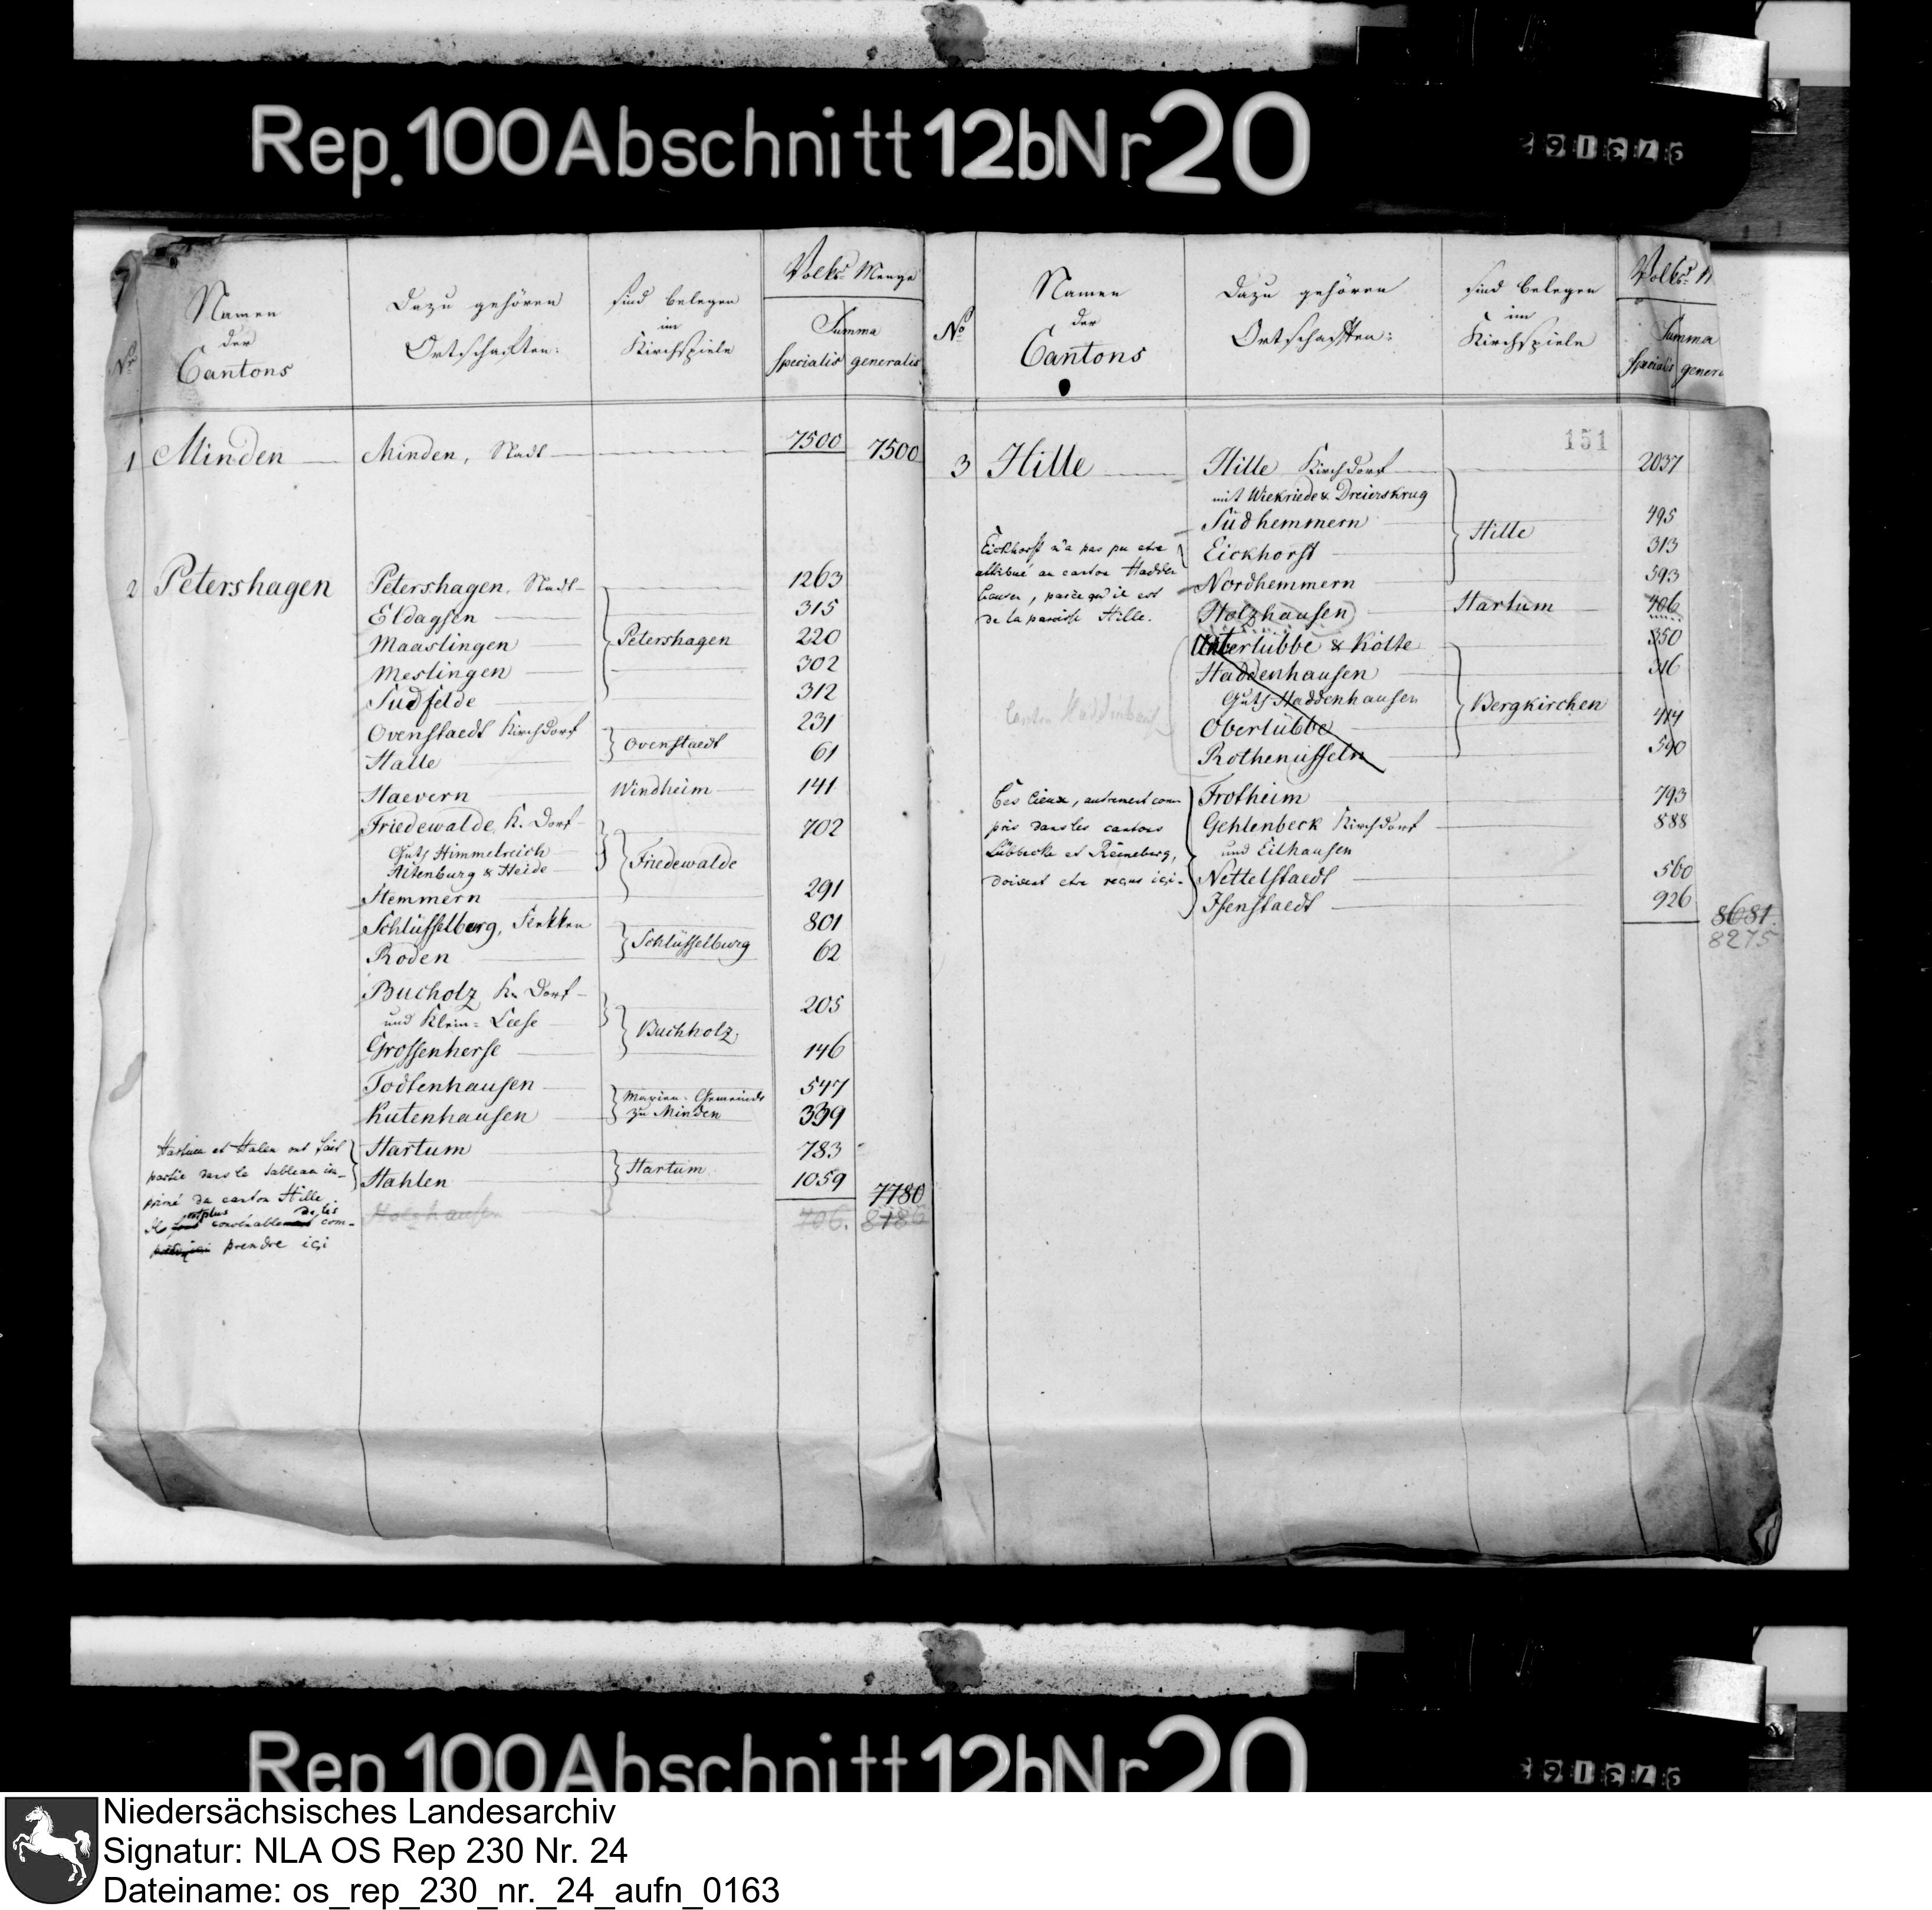 Rep. 100 Abschnitt 12b Nr 20
Nr
Namen der Cantons
Dazu gehören Ortschaften:
sind belegen im Kirchspiele
Volks Menge
Summa
specialis generalis
1 Minden Minden, Stadt 7500 7500
2 Petershagen Petershagen, Stadt 1263
Eldagsen 315
Maaslingen Petershagen 220
Meslingen 302
Südfelde 312
Ovenstaedt Kirchdorf 231
Halle Ovenstaedt 61
Haevern Windheim 141
Friedewalde, K. Dorf 702
Guth Himmelreich
Altenburg & Heide Friedewalde
Stemmern 291
Schlüsselberg, Flekken 801
Roden Schlüsselburg 62
Bucholz, K. Dorf 205
und Klein-Leese Buchholz
Grossenherse 146
Todtenhausen 547
Kutenhausen Marien Gemeinde zu Minden 339
Hartum 783
Hahlen Hartum 1059 7780
Holzhausen 406. 8186
Hartum et Halen ont fait
partie dans le tableau im-
primé du canton Hille
Il est plus convenable de les com-
prendre içi
No
Namen der Cantons
Dazu gehören Ortschaften:
sind belegen im Kirchspiele
Volks M
Summa
specialis genera
151
3 Hille Hille Kirchdorf 2037
mit Wiekriede & Dreierskrug
Südhemmern Hille 495
Eickhorst 313
Nordhemmern 593
Holzhausen Hartum 406
Unterlübbe & Költe 350
Haddenhausen 346
Guth Haddenhausen Bergkirchen
Oberlübbe 414
Rothenuffeln 590
Eickhorst n'a pas pu etre
attribué au canton Hadden
hausen, parce qu'il est
de la paroisse Hille.
Canton Haddenhaus
Frotheim 793
Gehlenbeck Kirchdorf 888
und Eilhausen
Nettelstaedt 560
Isenstaedt 926 8681.
8275
Ces lieux, autrement com-
pris dans les cantons
Lübbecke et Reineberg,
doivent etre reçus içi.
Rep. 100 Abschnitt 12b Nr 20
Niedersächsisches Landesarchiv
Signatur: NLA OS Rep 230 Nr. 24
Dateiname: os_rep_230_nr._24_aufn_0163